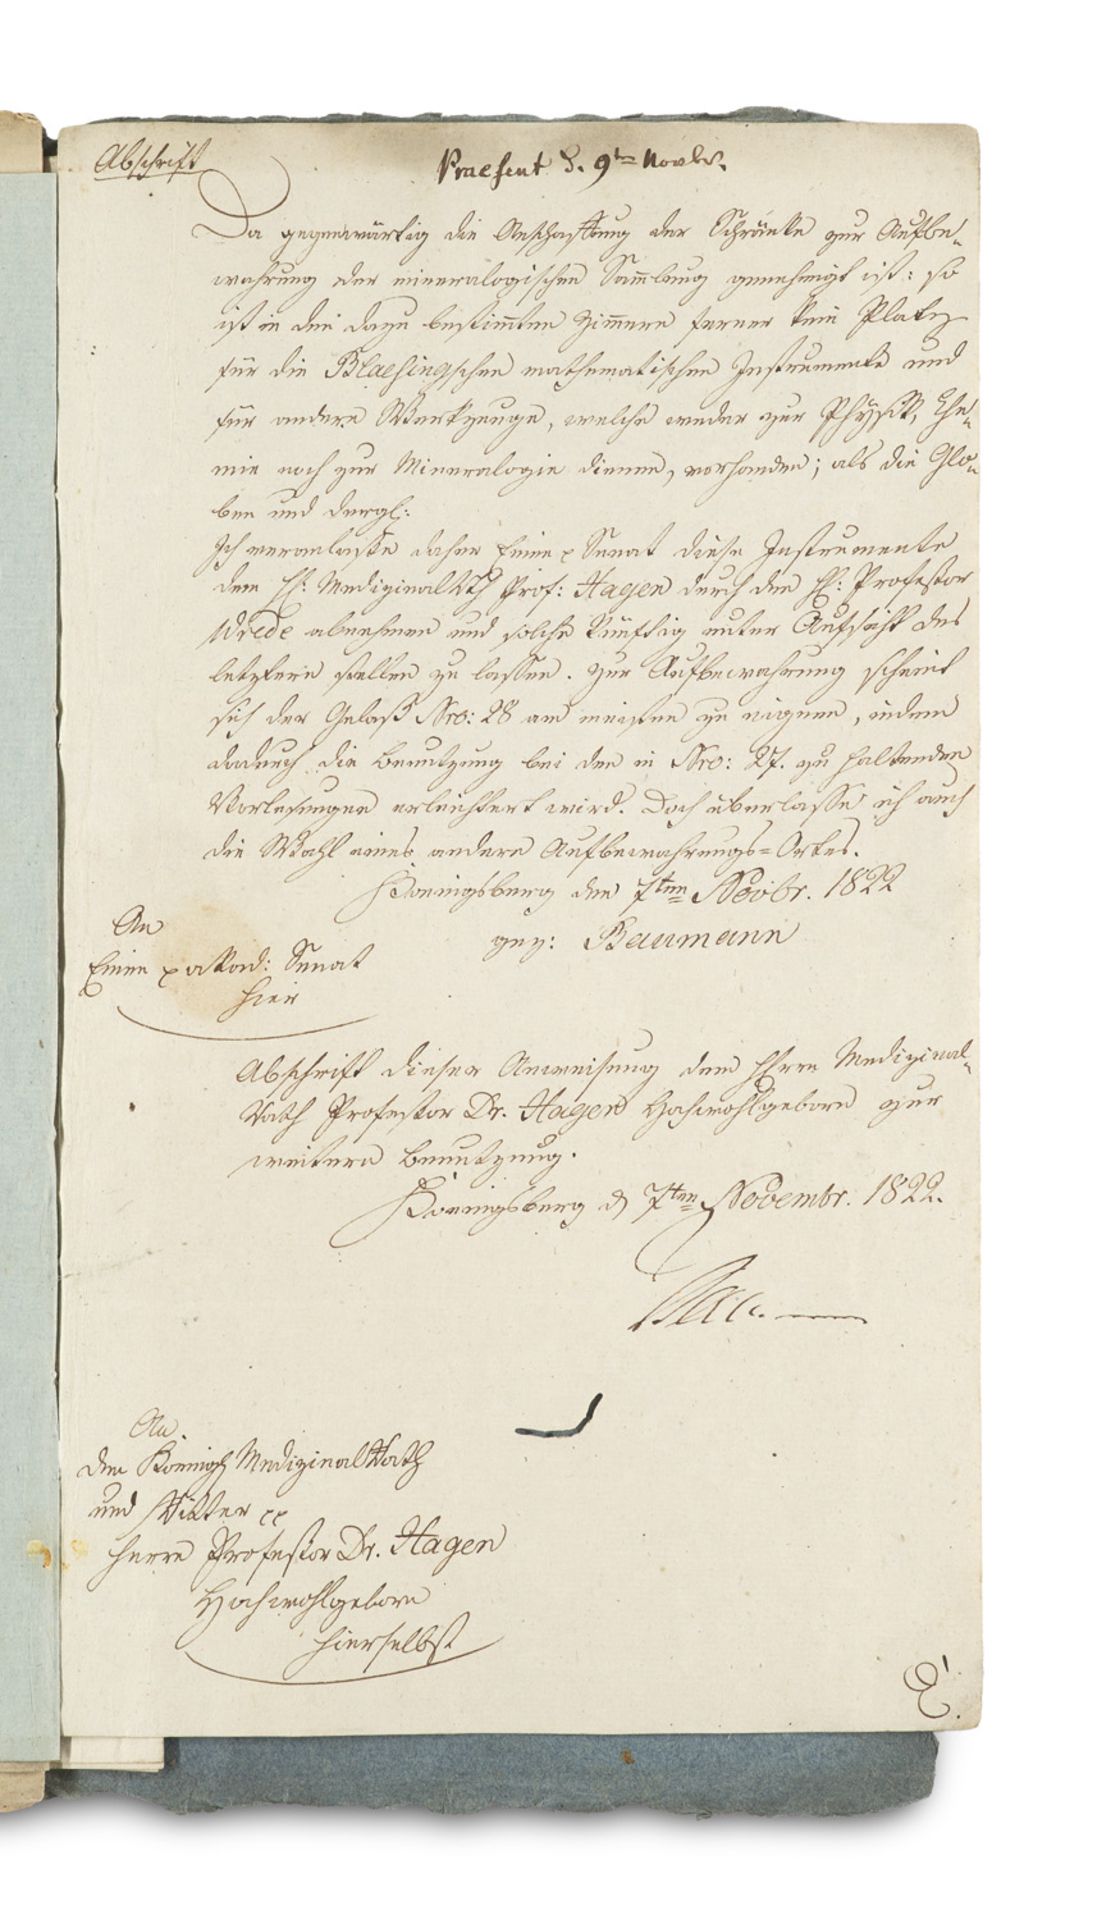 Abschrift
Praesent d. 9ten Novbr.
Da gegenwärtig die Anschaffung der Schränke zur Aufbe-
wahrung der mineralogischen Sammlung genehmigt ist: so
ist in den dazu bestimmten Zimmern ferner kein Platz
für die Blaesingschen mathematischen Instrumente und
für andere Werkzeuge, welche weder zur Physik, Che-
mie noch zur Mineralogie dienen, vorhanden; als die Glo-
ben und dergl:
Ich veranlaße daher Einen p Senat diese Instrumente
dem H: MedizinalRth Prof: Hagen durch den H: Professor
Wrede abnehmen und solche künftig unter Aufsicht des
letztern stellen zu lassen. Zur Aufbewahrung scheint
sich der Gelaß Nro: 28 am meisten zu eignen, indem
dadurch die Benutzung bei den in Nro: 27. zu haltenden
Vorlesungen erleichtert wird. Doch überlasse ich auch
die Wahl eines andern Aufbewahrungs=Ortes.
Koenigsberg den 7ten Novbr. 1822
gez: Baumann
An
Einen p akad: Senat
hier
Abschrift dieser Anweisung dem Herrn Medizinal-
Rath Professor Dr. Hagen Hochwohlgeborn zur
weitern Benutzung.
Koenigsberg d 7ten Novembr. 1822.
An
den Königl MedizinalRath
und Ritter pp
Herrn Professor Dr. Hagen
Hochwohlgeborn
hierselbst